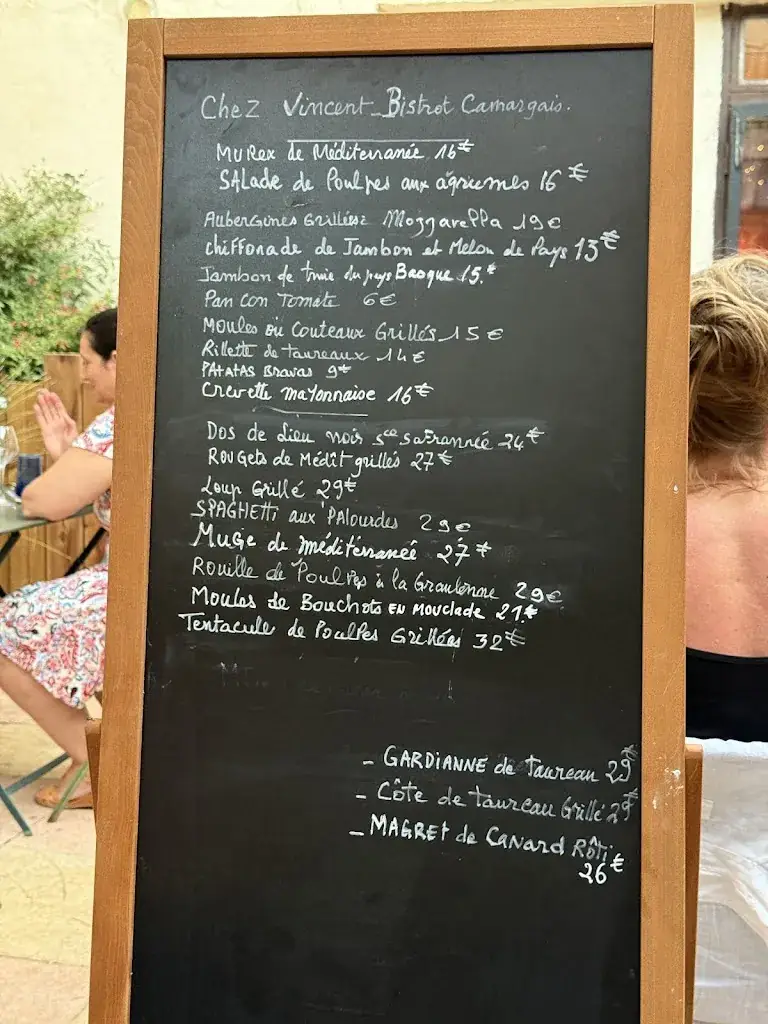 Chez Vincent_Bistrot Camargais.
MuRex de Méditerranée 16€
SALade de Poulpes aux agrumes 16€
AuberGines Grillées Mozzarella 19€
chiffonade de Jambon et Melon de Pays 13€
Jambon de truie du pays Basque 15.€
Pan con Tomate 6€
Moules ou Couteaux Grillés 15€
Rillette de taureaux 14€
PAtATAS Bravas 9€
Crevette mayonnaise 16€
Dos de Lieu noir sce safrannée 24€
Rougets de Médit grillés 27€
Loup Grillé 29€
SPAGHETTi aux PALourdes 29€
Muge de méditérranée 27€
Rouille de Poulpes à la Graulenne 29€
Moules de Bouchots EN Mouclade 21.€
Tentacule de Poulpes Grillées 32€
- GARDIANNE de taureau 29€
- Côte de taureau Grillé 29€
- MAGRet de CaNard Rôti
26€